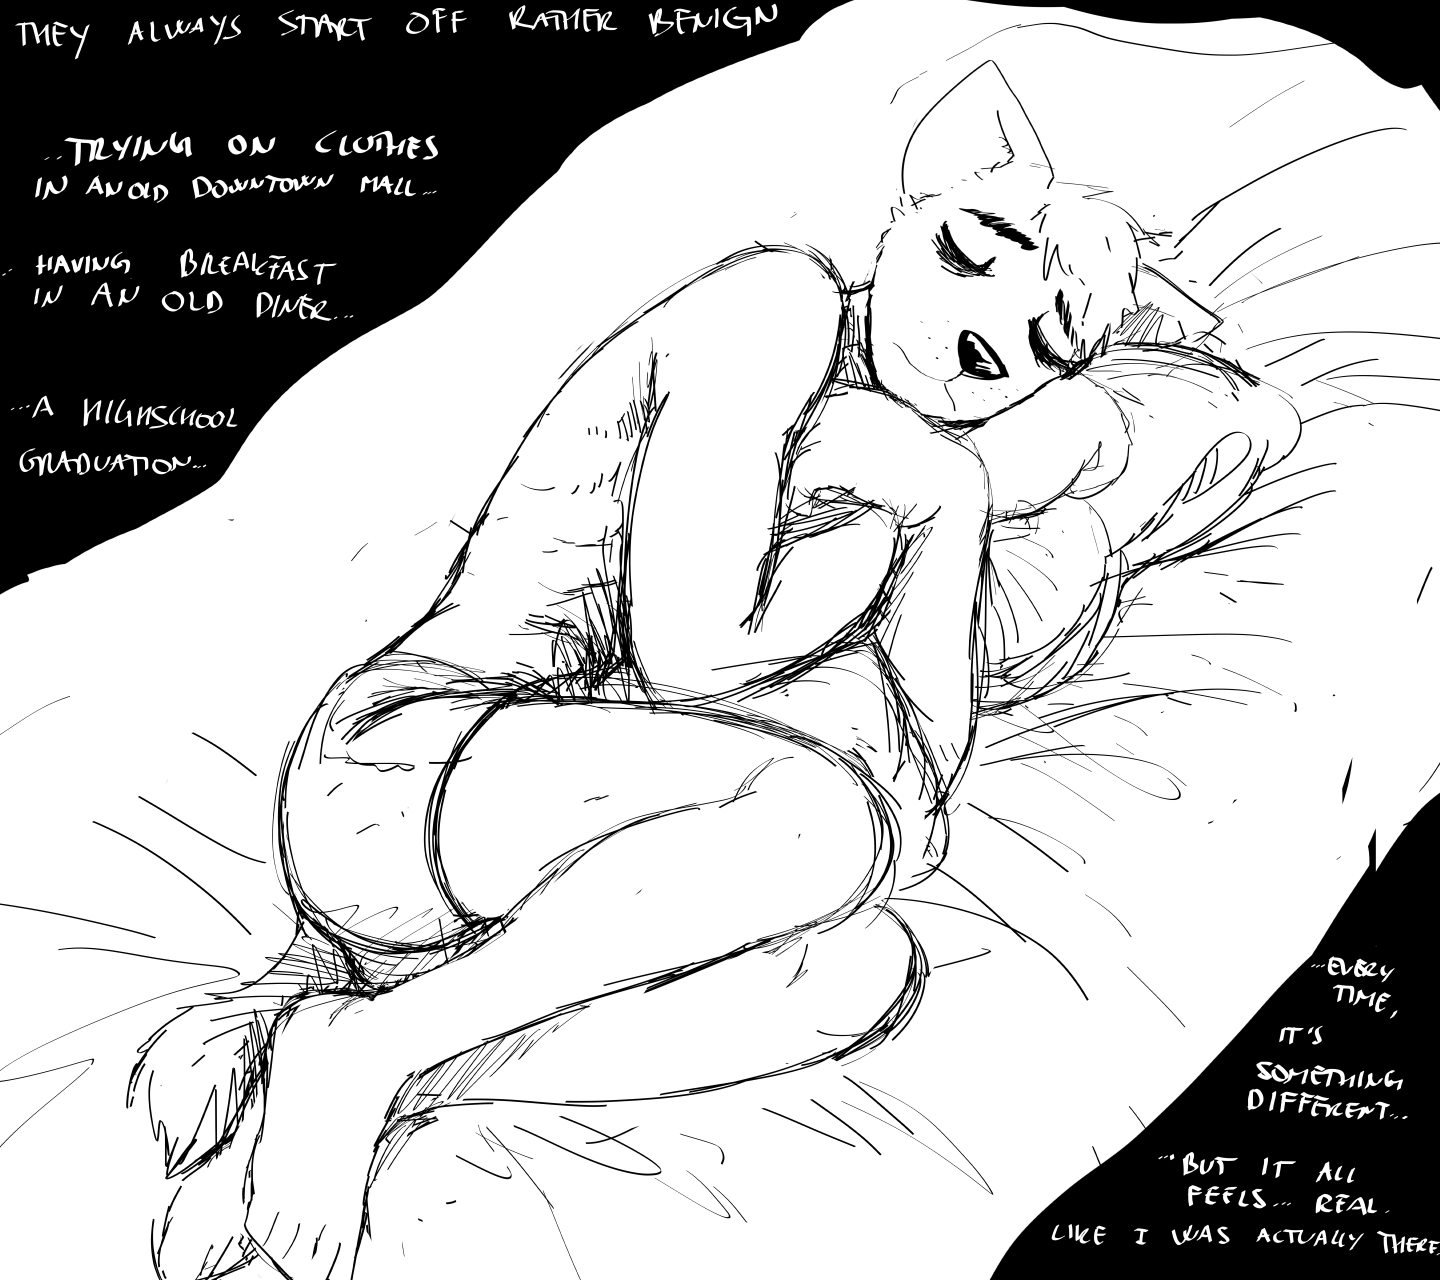 THEY ALWAYS START OFF RATHER BENIGN
..TRYING ON CLOTHES
IN AN OLD DOWNTOWN MALL...
.. HAVING BREAKFAST
IN AN OLD DINER...
...A HIGHSCHOOL
GRADUATION...
...EVERY
TIME,
IT'S
SOMETHING
DIFFERENT...
..."BUT IT ALL
FEELS... REAL.
LIKE I WAS ACTUALLY THERE